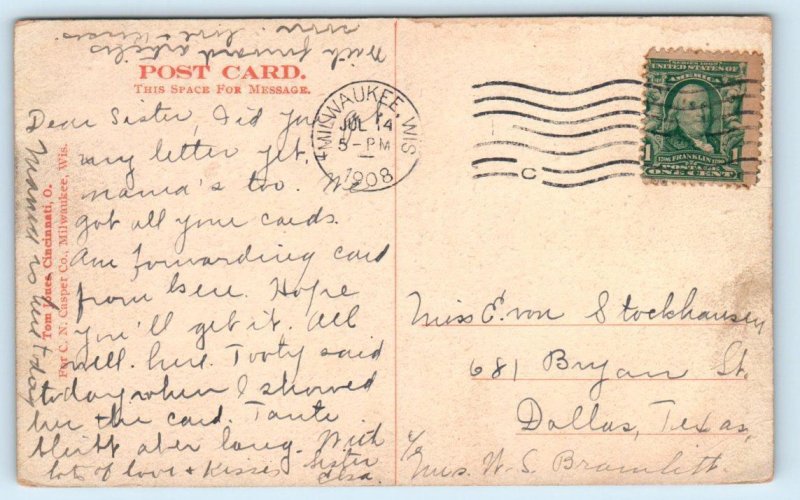 POST CARD.
THIS SPACE FOR MESSAGE.
Dear Sister, Did you get
my letter yet,
mama's too. We
got all your cards.
Am forwarding card
from here. Hope
you'll get it. All
well here. Tooty said
today when I showed
her the card. Tante
bleibt aber lang. With
lots of love + Kisses Sister
forward articles
soon. love + Kisses.
Tom Jones, Cincinnati, O.
For C. N. Casper Co., Milwaukee, Wis.
MILWAUKEE, WIS.
JUL 14
5-PM
1908
C
SERIES 1902
UNITED STATES OF
AMERICA
1706 FRANKLIN 1790
POSTAGE
1 ONE CENT 1
Miss E. von Stockhausen
681 Bryan St.
Dallas, Texas,
c/o
Mrs. W. S. Bramlett.